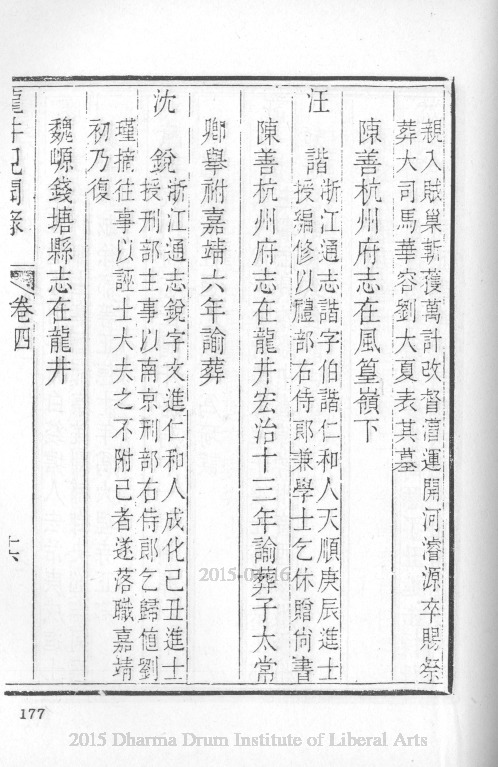 親入賊巢斬獲萬計改督漕運開河濬源卒賜祭
葬大司馬華容劉大夏表其墓
陳善杭州府志在風篁嶺下
汪諧
浙江通志諧字伯諧仁和人天順庚辰進士
授編修以禮部右侍郎兼學士乞休贈尙書
陳善杭州府志在龍井宏治十三年諭葬子太常
卿舉祔嘉靖六年諭葬
沈銳
浙江通志銳字文進仁和人成化己丑進士
授刑部主事以南京刑部右侍郎乞歸値劉
瑾摘往事以誣士大夫之不附己者遂落職嘉靖
初乃復
魏㟲錢塘縣志在龍井
龍井見聞錄
卷四
十六
177
2015 Dharma Drum Institute of Liberal Arts